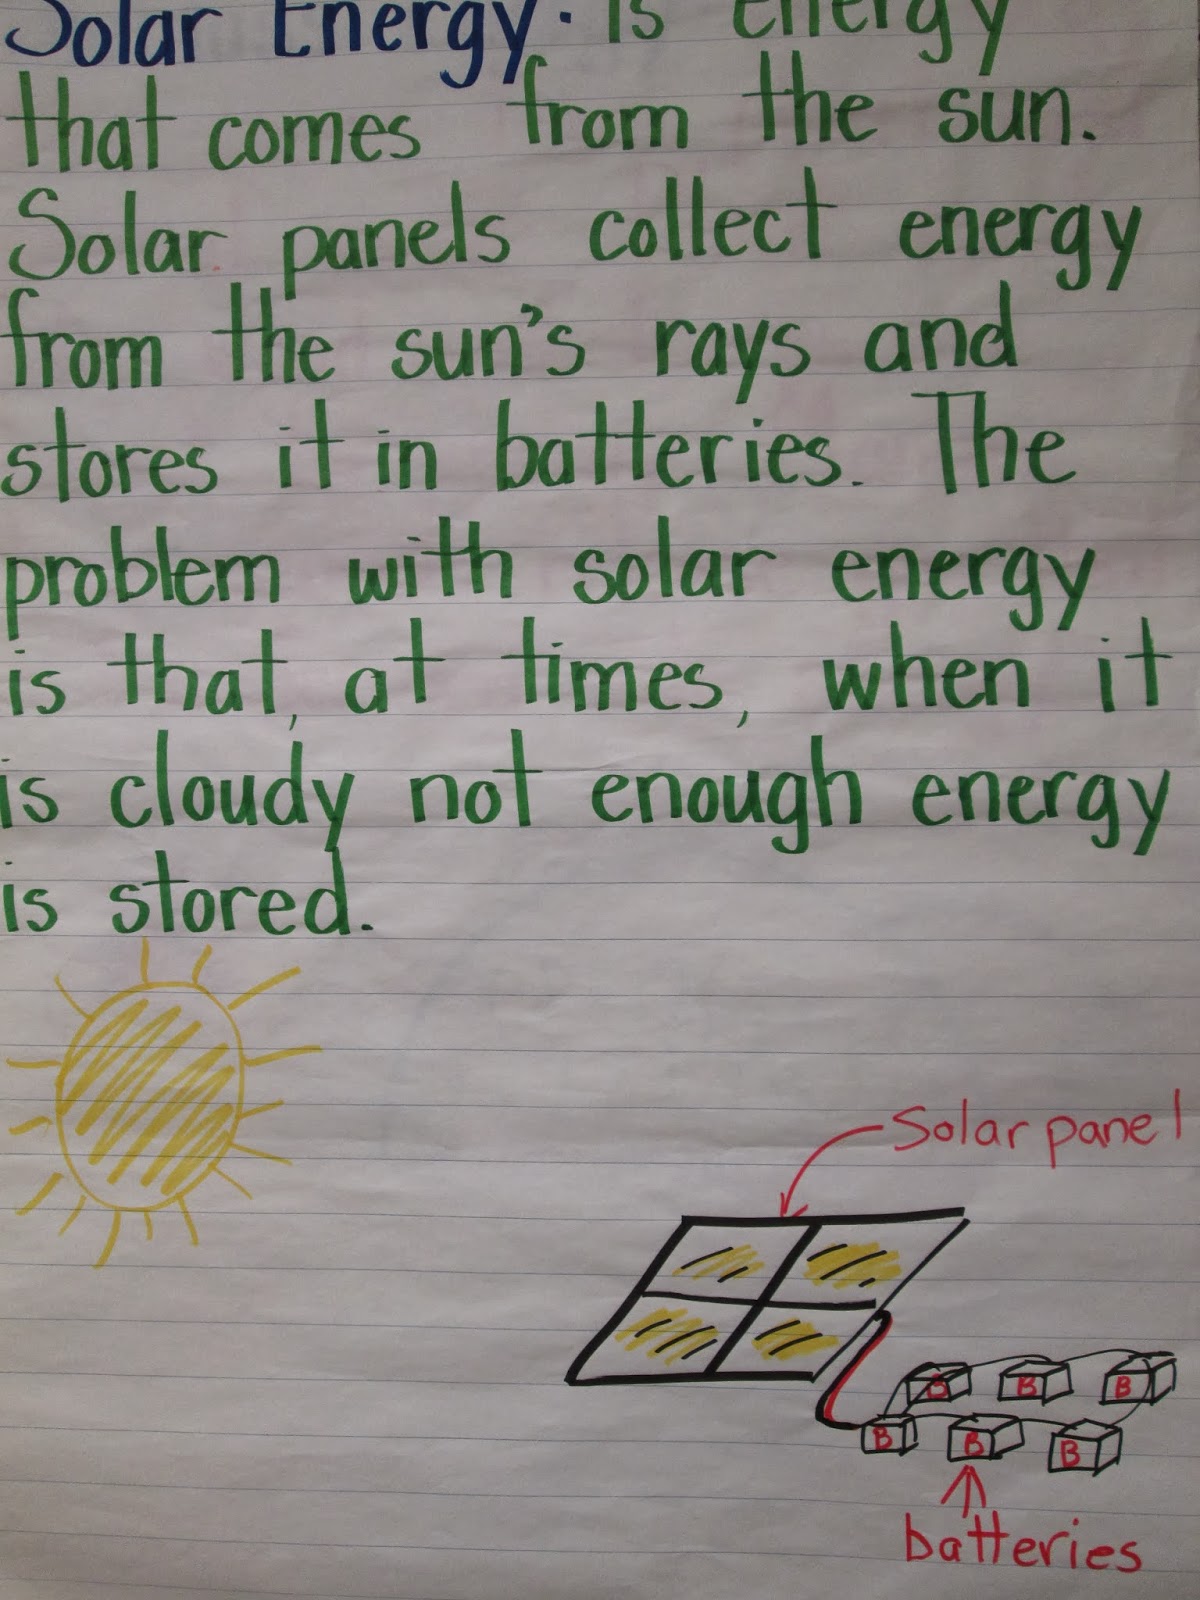 Solar Energy: is energy
that comes from the sun.
Solar panels collect energy
from the sun's rays and
stores it in batteries. The
problem with solar energy
is that, at times, when it
is cloudy not enough energy
is stored.
Solar panel
B B B
B B B
batteries